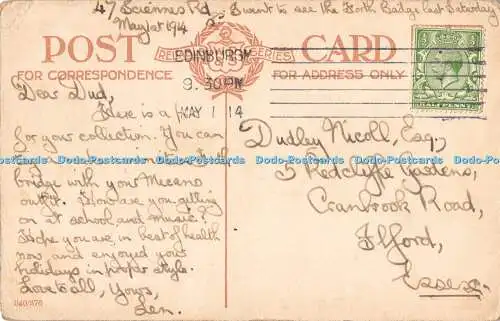 47 Sciennes Rd
May 1st 1914
I went to see the Forth Bridge last Saturday
POST CARD
FOR CORRESPONDENCE
FOR ADDRESS ONLY
EDINBURGH
9.30 PM
MAY 1 14
HALF PENNY
Dear Dud,
Here is a
for your collection. You can
bridge with your Meccano
outfit. How are you getting
on at school and music?
Hope you are in best of health
now and enjoyed your
holidays in proper style.
Love to all, Yours,
Len.
Dudley Nicoll, Esq.,
5 Redcliffe Gardens,
Cranbrook Road,
Ilford,
Essex.
Dodo-Postcards Dodo-Postcards Dodo-Postcards Dodo-Postcards